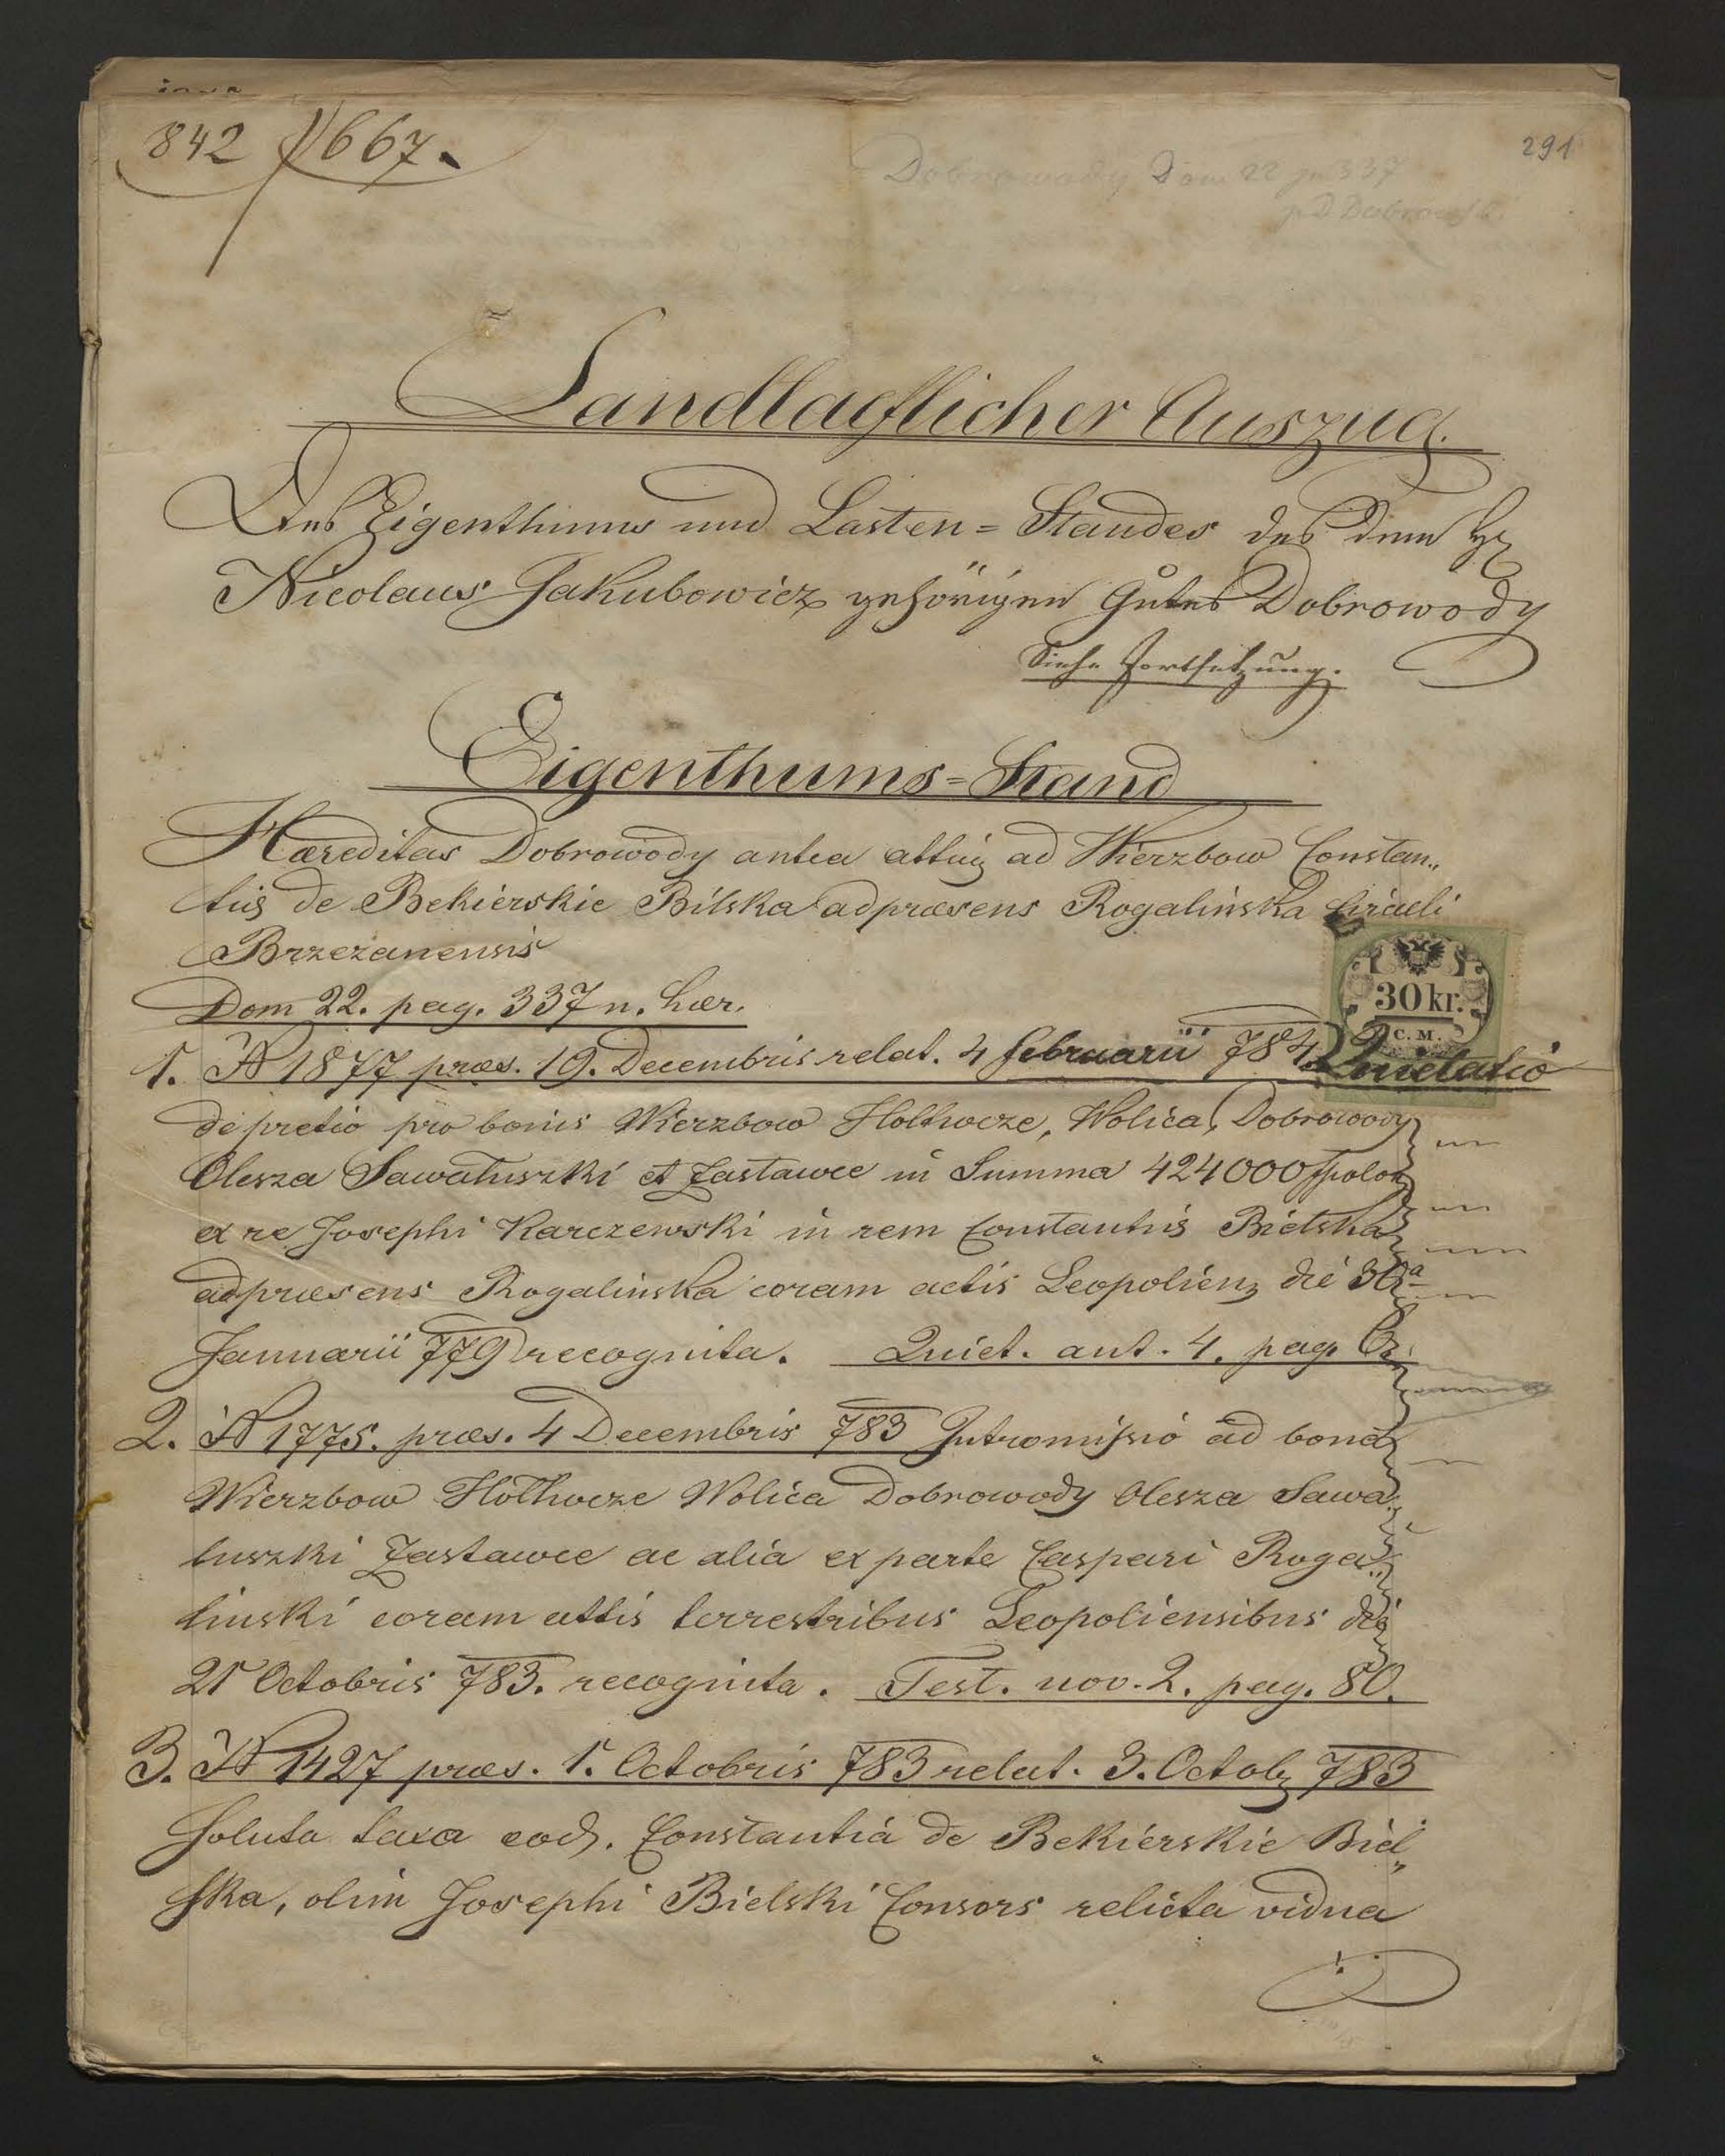 842 / 667.
291
Dobrowody Dom 22 p 337
Landtaflicher Auszug.
Des Eigenthums und Lasten=Standes des dem H
Nicolaus Jakubowicz gehörigen Gutes Dobrowody
Siehe Fortsetzung.
Eigenthums=Stand
Hæreditas Dobrowody antea atting ad Wierzbow Constan„
tiæ de Bekierskie Bilska adpræsens Rogalinska Circuli
Brzezanensis
Dom 22. pag. 337 n. hær.
30 kr.
C. M.
1. N 1877 præs. 19. Decembris relat. 4 februarii 784 Quietatio
de pretio pro bonis Wierzbow Holhocze, Wolica, Dobrowody
Olesza Sawaluszki et Zastawce in Summa 424000 fpolon
ex re Josephi Karczewski in rem Constantiæ Bielska
adpræsens Rogalinska coram actis Leopolien die 30a
Januarii 779 recognita. Quiet. ant. 4. pag.
2. N 1775. præs. 4 Decembris 783 Intromissio ad bona
Wierzbow Holhocze Wolica Dobrowody Olesza Sawa„
luszki Zastawce ac alia ex parte Caspari Roga„
linski coram actis terrestribus Leopoliensibus die
21 Octobris 783. recognita. Test. nov. 2. pag. 80.
3. N 1427 præs. 1. Octobris 783 relat. 3. Octob 783
Soluta taxa eod. Constantia de Bekierskie Biel„
ska, olim Josephi Bielski Consors relicta vidua